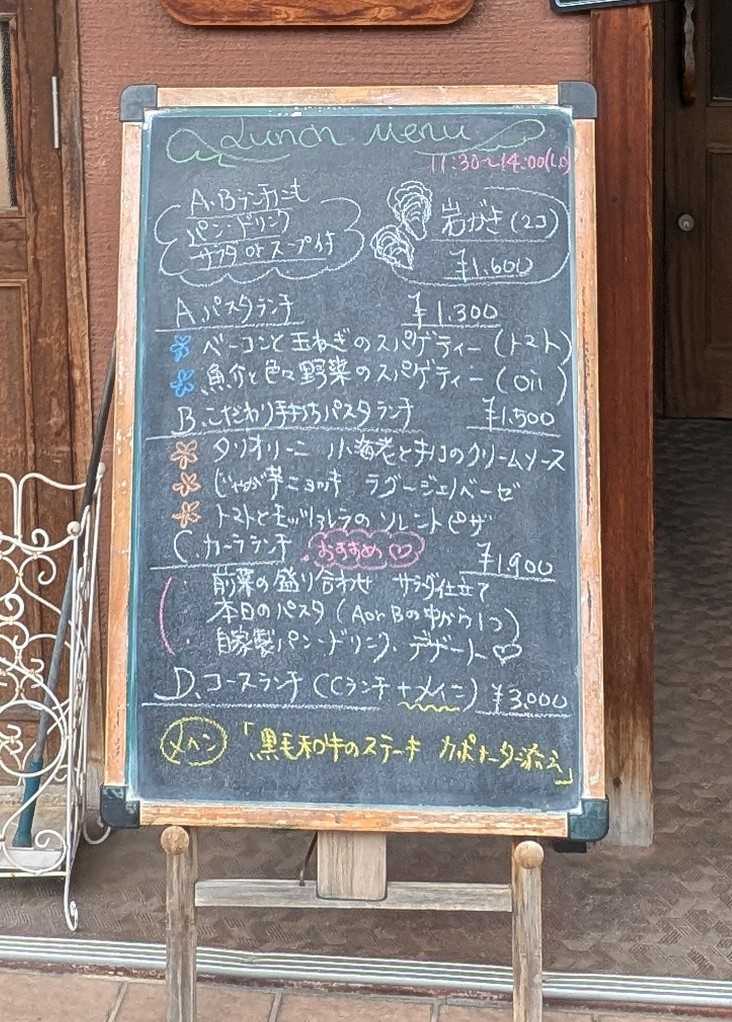 Lunch Menu
11:30〜14:00(L.O)
A.Bランチにも
パン・ドリンク
サラダ or スープ付
岩がき(2コ)
¥1,600
A.パスタランチ ¥1,300
ベーコンと玉ねぎのスパゲティー(トマト)
魚介と色々野菜のスパゲティー(oil)
B.こだわり手打ちパスタランチ ¥1,500
タリオリーニ 小海老とキノコのクリームソース
じゃが芋ニョッキ ラグージェノベーゼ
トマトとモッツァレラのソレントピザ
C.カーラランチ おすすめ♡ ¥1,900
前菜の盛り合わせ サラダ仕立て
本日のパスタ(AorBの中から1つ)
自家製パン・ドリンク・デザート♡
D.コースランチ(Cランチ+メイン) ¥3,000
メイン「黒毛和牛のステーキ カポナータ添え」